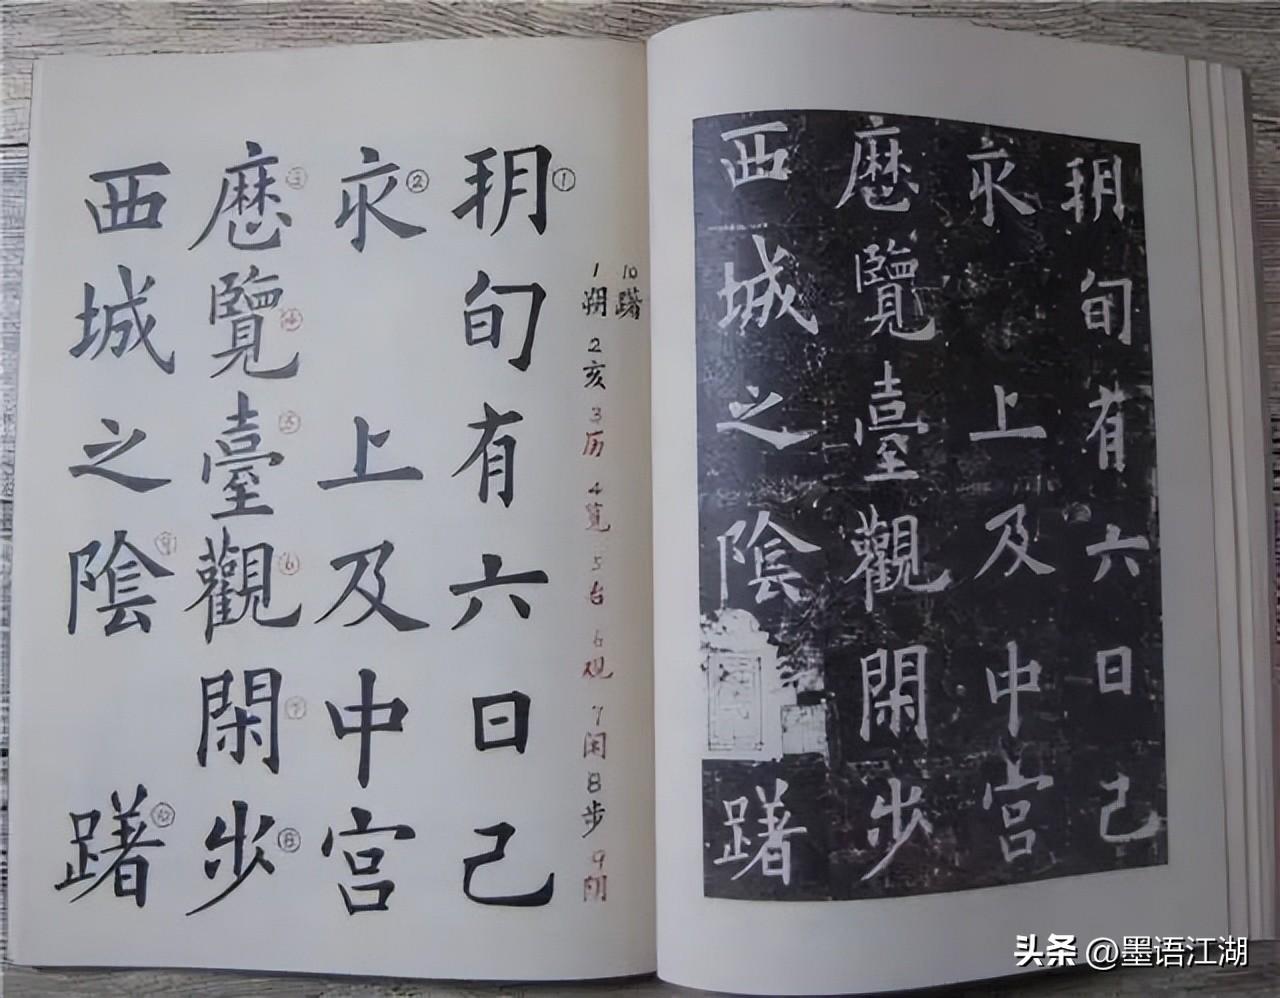 朔①旬有六日己
亥②上及中宫
歷③覽④臺⑤觀⑥閑⑦步⑧
西城之陰⑨躇⑩
1朔 2亥 3历 4览 5台 6观 7闲 8步 9阴
10躇
朔旬有六日己
亥上及中宫
歷覽臺觀閑步
西城之陰躇
头条 @墨语江湖